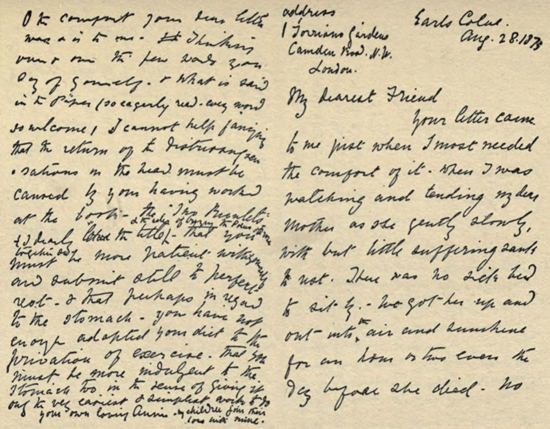 address
1 Torriano Gardens
Camden Road. N.W.
London.
Earls Colne.
Aug. 28. 1875
My Dearest Friend
Your letter came
to me just when I most needed
the comfort of it. when I was
watching and tending my dear
Mother as she gently, slowly,
with but little suffering sank
to rest. There was no sick bed
to sit by. - we got her up and
out into the air and sunshine
for an hour or two even the
day before she died. No
O the comfort your dear letter
was & is to me. Thinking
over & over the few words you
say of yourself - & what is said
in the Paper (so eagerly read - every word
so welcome) I cannot help fancying
that the return of the sen
-sations in the head must be
caused by your having worked
at the book - the "Two Rivulets"
& the idea of the Prose
(& I dearly the title) - that you
together so)
must be more patient with yourself
and submit still to perfect
rest - & that perhaps in regard
to the stomach - you have not
enough adapted your diet to the
privation of exercise - that you
must be more indulgent to the
stomach too in the sense of giving it
only the very easiest & simplest work to do
your own loving Annie. My children join their
love with mine.